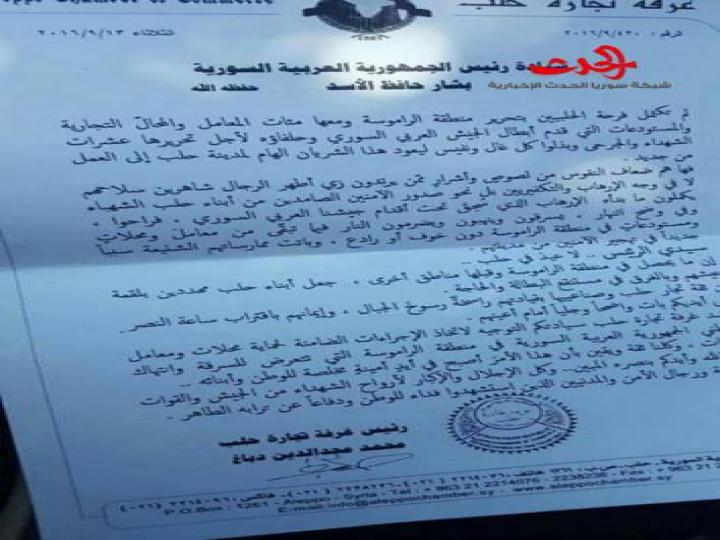 Aleppo Chamber of Commerce
غرفة تجارة حلب
الثلاثاء ٢٠١٦/٩/١٣
الرقم : ٢٠١٦/٩/٤٢٠
سيادة رئيس الجمهورية العربية السورية
بشار حافظ الأسد حفظه الله
الحدث
شبكة سوريا الحدث الإخبارية
لم تكتمل فرحة الحلبيين بتحرير منطقة الراموسة ومعها مئات المعامل والمحال التجارية
والمستودعات التي قدم أبطال الجيش العربي السوري وحلفاؤه لأجل تحريرها عشرات
الشهداء والجرحى وبذلوا كل غال ونفيس ليعود هذا الشريان الهام لمدينة حلب إلى العمل
من جديد ..
فها هم ضعاف النفوس من لصوص وأشرار ممن يرتدون زي أطهر الرجال شاهرين سلاحهم
لا في وجه الإرهاب والتكفيريين بل نحو صدور الآمنين الصامدين من أبناء حلب الشهباء
يكملون ما بدأه الإرهاب الذي سحق تحت أقدام جيشنا العربي السوري ، فراحوا ،
وفي وضح النهار ، يسرقون وينهبون ويضرمون النار فيما تبقى من معامل ومحلات
ومستودعات في منطقة الراموسة دون خوف أو رادع ، وباتت ممارساتهم الشنيعة سبباً
جديداً في تهجير الآمنين من مدينتهم .
سيدي الرئيس .. لا
إن ما يحصل في منطقة الراموسة وقبلها مناطق أخرى ، جعل أبناء حلب مهددين بلقمة
عيشهم وبالغرق في مستنقع البطالة والحاجة .
تجار حلب وصناعييها بقيادتهم راسخة رسوخ الجبال ، وإيمانهم باقتراب ساعة النصر
بات واضحاً وجلياً أمام أعينهم .
غرفة تجارة حلب سيادتكم التوجيه لاتخاذ الإجراءات الضامنة لحماية محلات ومعامل
الجمهورية العربية السورية في منطقة الراموسة التي تتعرض للسرقة وانتهاك
، وكلنا ثقة ويقين بأن هذا الأمر أصبح في أيدٍ أمينة مخلصة للوطن وأبنائه ..
وأيدكم بنصره المبين .. وكل الإجلال والإكبار لأرواح الشهداء من الجيش والقوات
ورجال الأمن والمدنيين الذين استشهدوا فداء للوطن ودفاعاً عن ترابه الطاهر .
رئيس غرفة تجارة حلب
محمد مجدالدين دباغ
السورية - حلب - ص.ب: ١٢٦١ هاتف
P.O.Box : 1261 - Aleppo - Syria - Tel : + 963 21 2214076 - Fax : + 963 21
E-mail: info@aleppochamber.sy - www.aleppochamber.sy